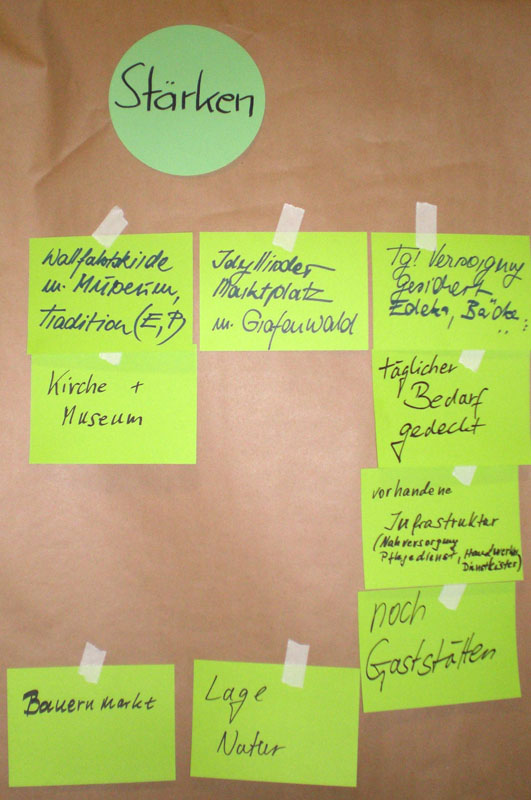 Stärken
Wallfahrtskirche
m. Museum,
Tradition (E, P)
Idyllischer
Marktplatz
m. Grafenwald
Tgl. Versorgung
gesichert
Edeka, Bäcker
Kirche +
Museum
täglicher
Bedarf
gedeckt
vorhandene
Infrastruktur
(Nahversorgung
Pflegedienst, Handwerker,
Dienstleister)
noch
Gaststätten
Bauernmarkt
Lage
Natur